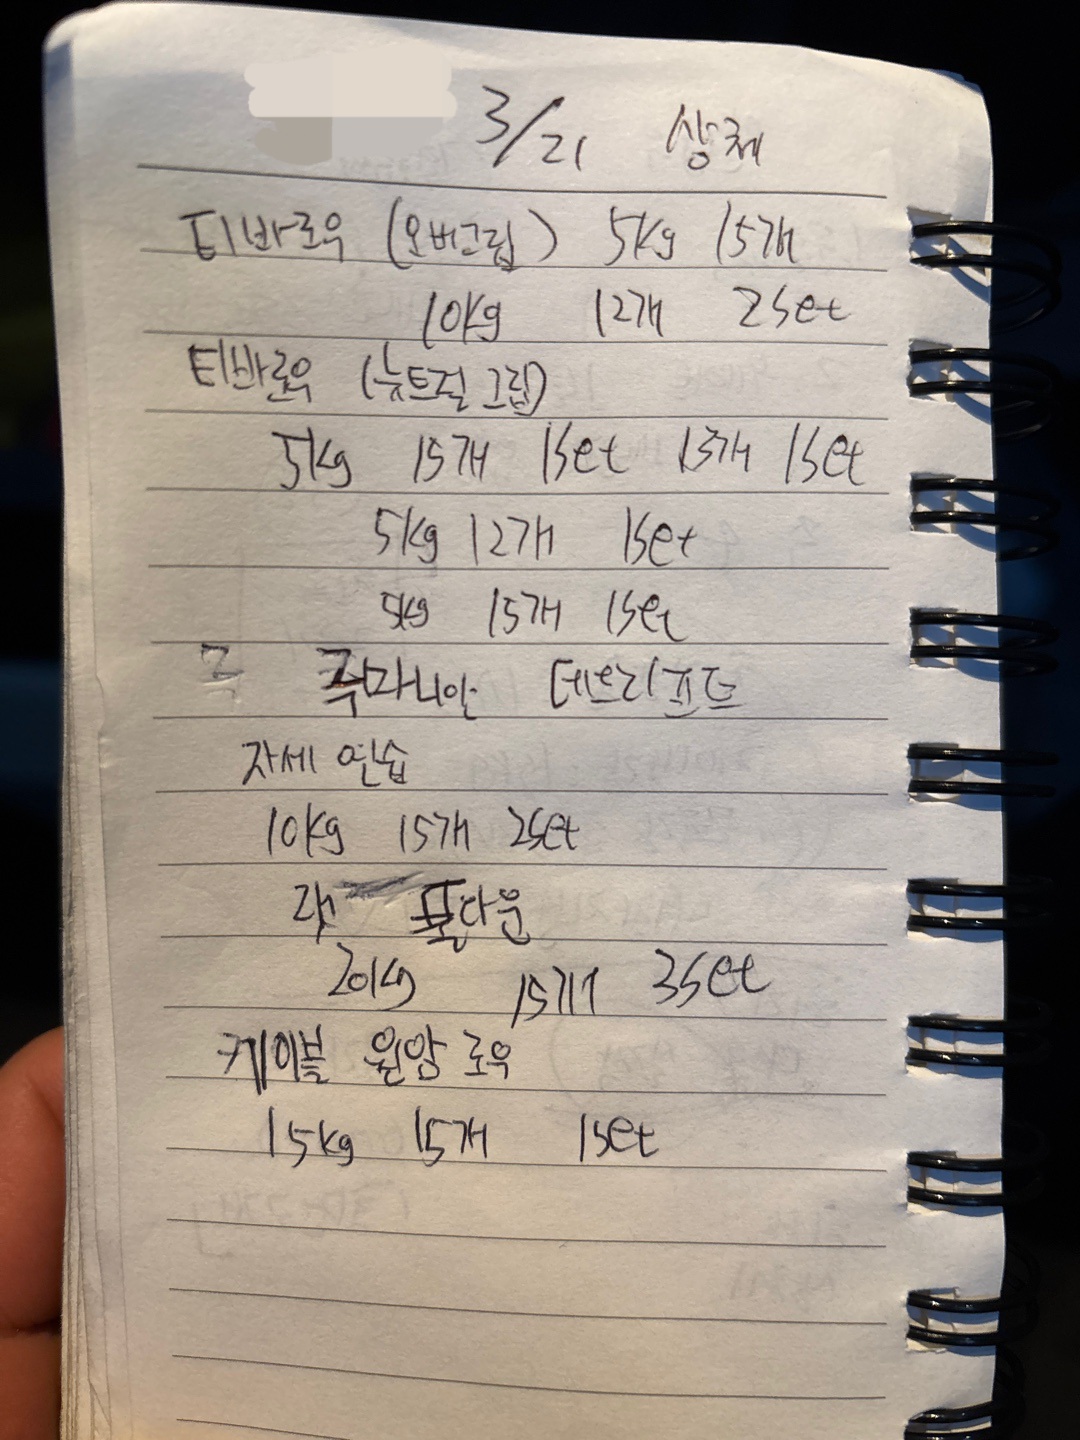 3/21 상체
티바로우 (오버그립) 5kg 15개
10kg 12개 2set
티바로우 (뉴트럴 그립)
5kg 15개 1set 13개 1set
5kg 12개 1set
5kg 15개 1set
데드리프트
자세 연습
10kg 15개 2set
랫 풀다운
20kg 15개 3set
케이블 원암 로우
15kg 15개 1set